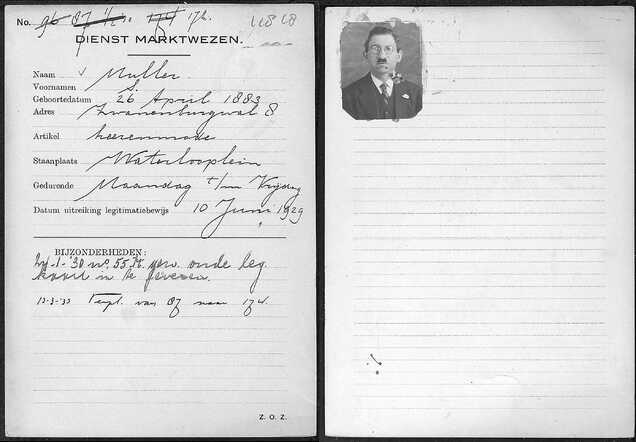 No. 96 87 174 172.
DIENST MARKTWEZEN.
Naam Muller.
Voornamen S.
Geboortedatum 26 April 1883
Adres Zwanenburgwal 8
Artikel heerenmode
Staanplaats Waterlooplein
Gedurende Maandag t/m Vrijdag
Datum uitreiking legitimatiebewijs 10 Juni 1929
BIJZONDERHEDEN:
-1-'30 no. 55 oude leg.
kaart in te leveren.
12-3-'30 Verpl. van 87 naar 174.
Z. O. Z.